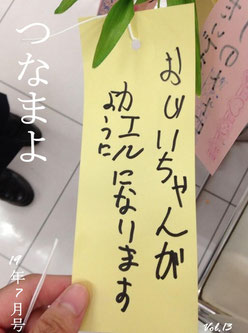 つなまよ
おじいちゃんが
カエルになります
ように
19年7月号
Vol.13